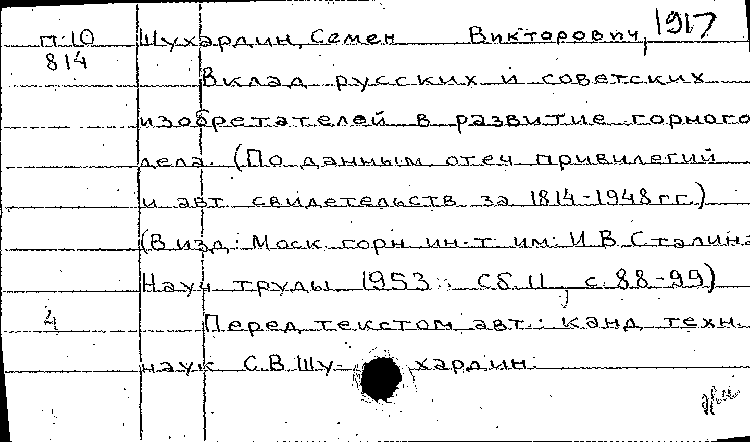 п:10 Шухардин, Семен Викторович, 1917
814
Вклад русских и советских
изобретателей в развитие горного
дела. (По данным отеч привилегий
и авт. свидетельств за 1814-1948 гг.)
(В изд.: Моск. горн ин-т. им. И.В. Сталина
Науч труды. 1953. Сб. 11, с. 88-99)
4 Перед текстом авт.: канд техн.
наук С.В. Шухардин.